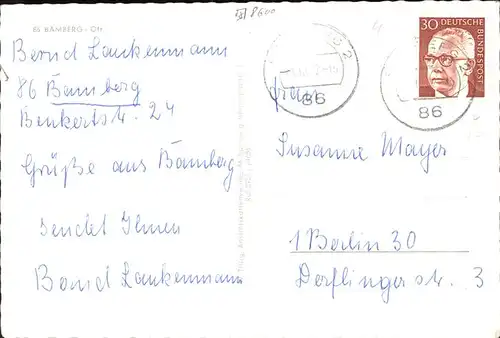 86 BAMBERG
8600
Bernd Lankenmann
86 Bamberg
Benkertstr. 24
Grüße aus Bamberg
sendet Ihnen
Bernd Lankenmann
86
30 DEUTSCHE
BUNDESPOST
2
86
Frau
Susanne Mayer
1 Berlin 30
Derflingerstr. 3